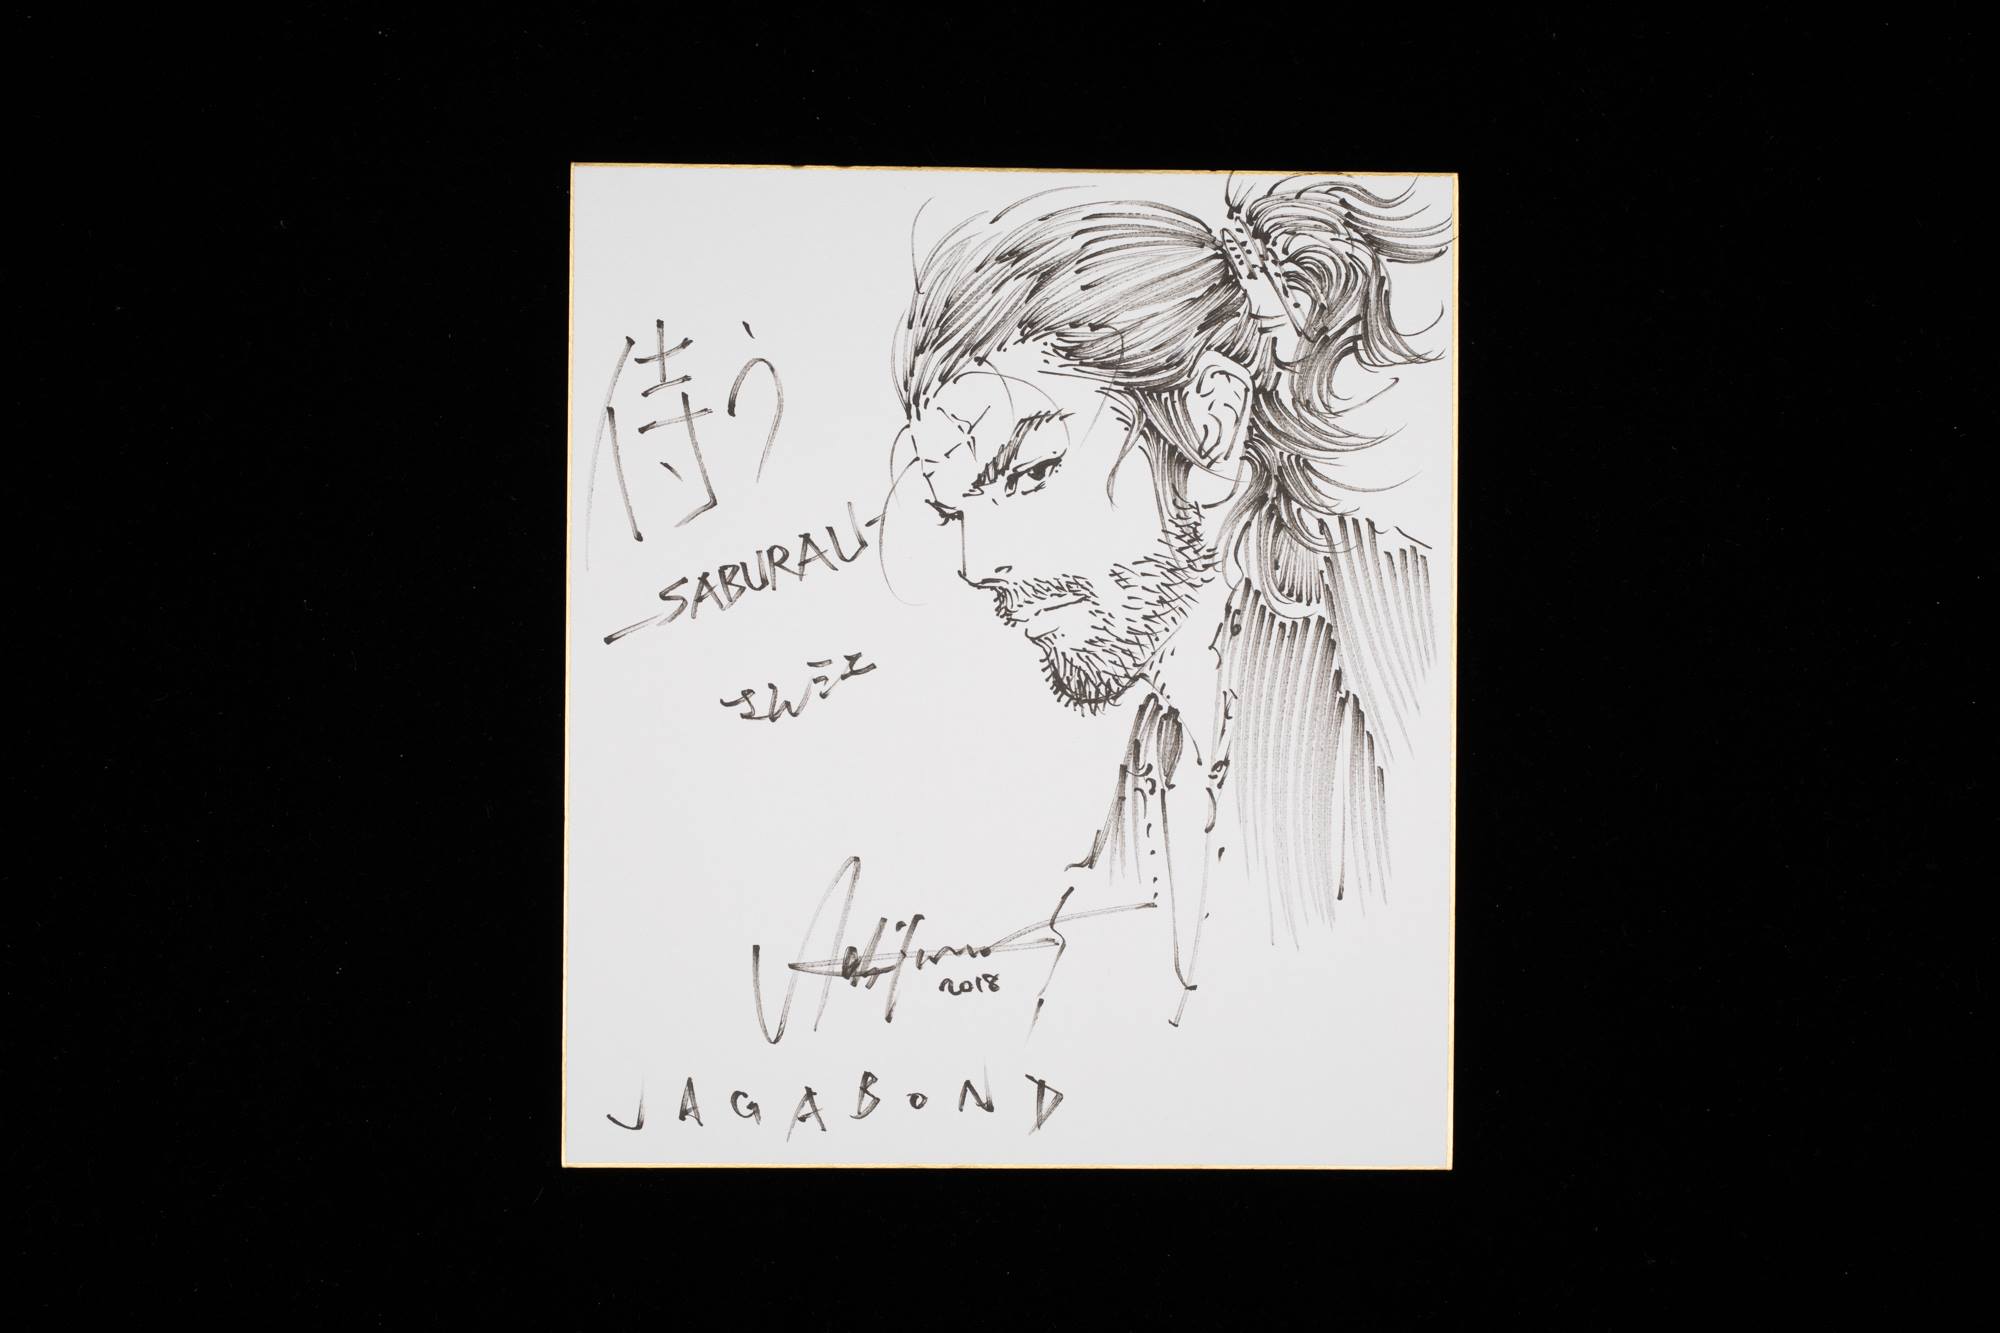 侍う
SABURAU
2018
JAGABOND